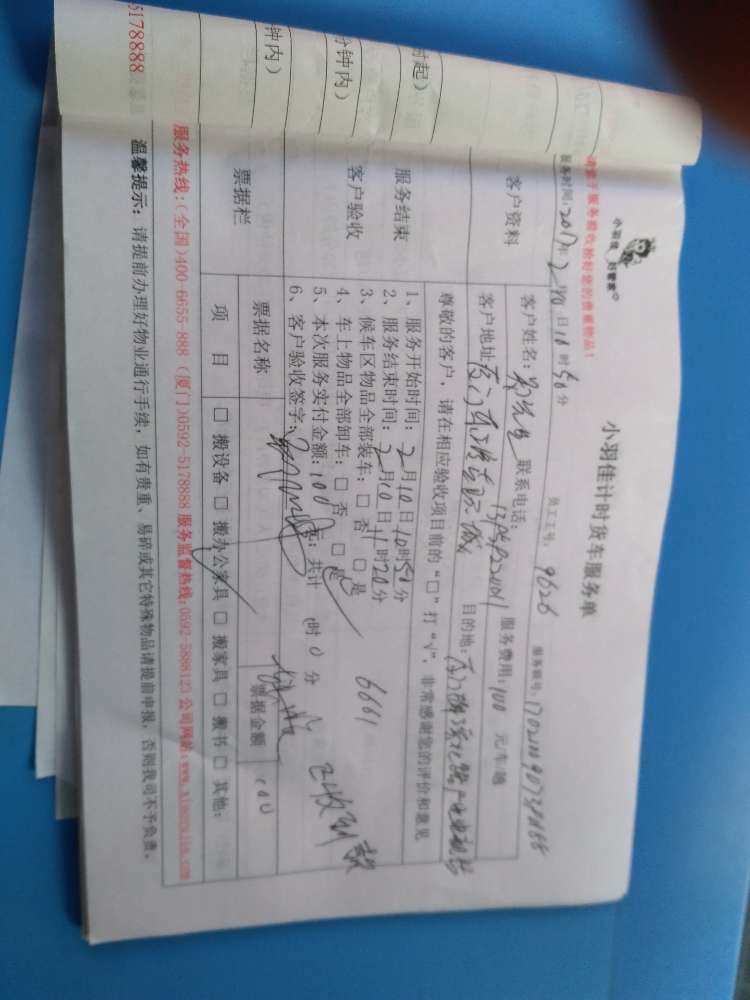 小羽佳计时货车服务单
小羽佳 好管家
请您于服务验收检好您的贵重物品!
服务时间:2017年2月10日10时50分 员工工号: 9626 服务账号:
客户资料
客户姓名: 郑先生 联系电话: 服务费用:100 元/车/趟
客户地址: 目的地:
尊敬的客户,请在相应验收项目前的“□”打“√”,非常感谢您的评价和意见
服务结束
客户验收
1、服务开始时间:2月10日10时50分
2、服务结束时间:2月10日11时20分
3、候车区物品全部装车:□ 否 □ 是
4、车上物品全部卸车:□ 否 □ 是
5、本次服务实付金额:100元;共计 时 0 分
6、客户验收签字:
6661
已收到款
票据栏
票据名称 票据金额 100
项 目 □ 搬设备 □ 搬办公家具 □ 搬家具 □ 搬书 □ 其他:
服务热线:(全国)400-6655-888 (厦门)0592-5178888 服务监督热线:0592-5888123 公司网站:www.xiaoyujia.com
温馨提示:请提前办理好物业通行手续,如有贵重、易碎或其它特殊物品请提前申报,否则我司不予负责。
时起)
分钟内)
钟内)
5178888